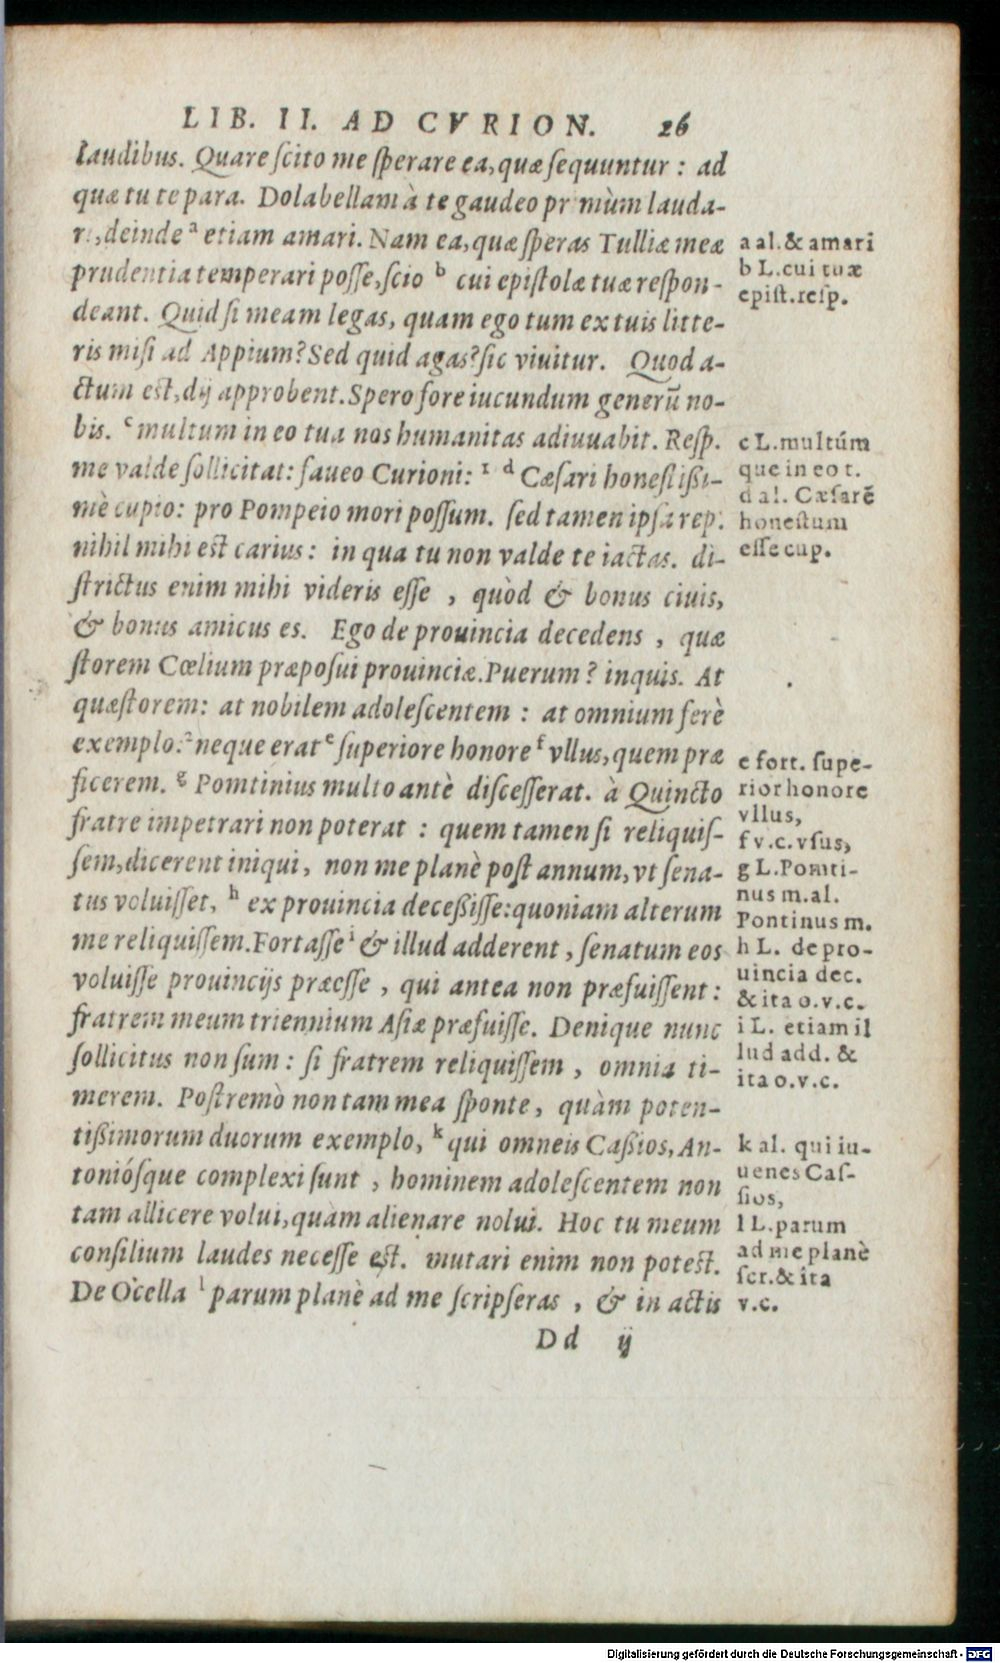 LIB. II. AD CVRION. 26
laudibus. Quare ſcito me ſperare ea, quæ ſequuntur : ad
quæ tu te para. Dolabellam à te gaudeo pr mùm lauda-
r., deinde ᵃ etiam amari. Nam ea, quæ ſperas Tulliæ meæ
prudentia temperari poſſe, ſcio ᵇ cui epiſtolæ tuæ reſpon-
deant. Quid ſi meam legas, quam ego tum ex tuis litte-
ris miſi ad Appium? Sed quid agas? ſic viuitur. Quod a-
ctum eſt, dij approbent. Spero fore iucundum generũ no-
bis. ᶜ multum in eo tua nos humanitas adiuuabit. Reſp.
me valde ſollicitat: faueo Curioni: ¹ ᵈ Cæſari honeſtißi-
mè cupio: pro Pompeio mori poſſum. ſed tamen ipſa rep.
nihil mihi eſt carius : in qua tu non valde te iactas. di-
ſtrictus enim mihi videris eſſe , quòd & bonus ciuis,
& bonus amicus es. Ego de prouincia decedens , quæ
ſtorem Cœlium præpoſui prouinciæ. Puerum? inquis. At
quæſtorem: at nobilem adoleſcentem : at omnium ferè
exemplo: ² neque erat ᵉ ſuperiore honore ᶠ vllus, quem præ
ficerem. ᵍ Pomtinius multo antè diſceſſerat. à Quincto
fratre impetrari non poterat : quem tamen ſi reliquiſ-
ſem, dicerent iniqui, non me planè poſt annum, vt ſena-
tus voluiſſet, ʰ ex prouincia deceßiſſe: quoniam alterum
me reliquiſſem. Fortaſſe ⁱ & illud adderent, ſenatum eos
voluiſſe prouincijs præeſſe , qui antea non præfuiſſent :
fratrem meum triennium Aſiæ præfuiſſe. Denique nunc
ſollicitus non ſum : ſi fratrem reliquiſſem , omnia ti-
merem. Poſtremò non tam mea ſponte, quàm poten-
tißimorum duorum exemplo, ᵏ qui omneis Caßios, An-
tonióſque complexi ſunt , hominem adoleſcentem non
tam allicere volui, quàm alienare nolui. Hoc tu meum
conſilium laudes neceſſe eſt. mutari enim non poteſt.
De Ocella ˡ parum planè ad me ſcripſeras , & in actis
Dd ij
a al. & amari
b L. cui tuæ
epiſt. reſp.
c L. multúm
que in eo t.
d al. Cæſarẽ
honeſtum
eſſe cup.
e fort. ſupe-
rior honore
vllus,
f v.c. vſus,
g L. Pomti-
nus m. al.
Pontinus m.
h L. de pro-
uincia dec.
& ita o.v.c.
i L. etiam il
lud add. &
ita o.v.c.
k al. qui iu-
uenes Caſ-
ſios,
l L. parum
ad me planè
ſcr. & ita
v.c.
Digitalisierung gefördert durch die Deutsche Forschungsgemeinschaft - DFG